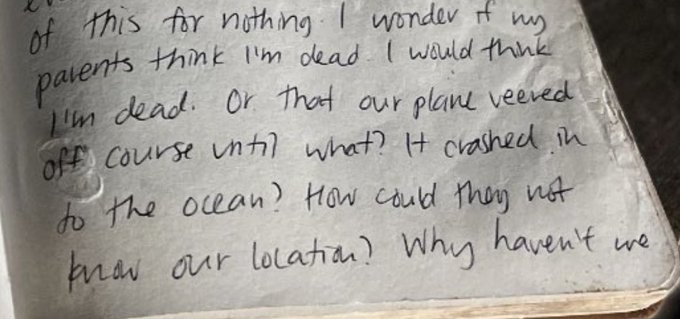 of this for nothing. I wonder if my
parents think I'm dead. I would think
I'm dead. Or that our plane veered
off course until what? It crashed in
to the ocean? How could they not
know our location? Why haven't we